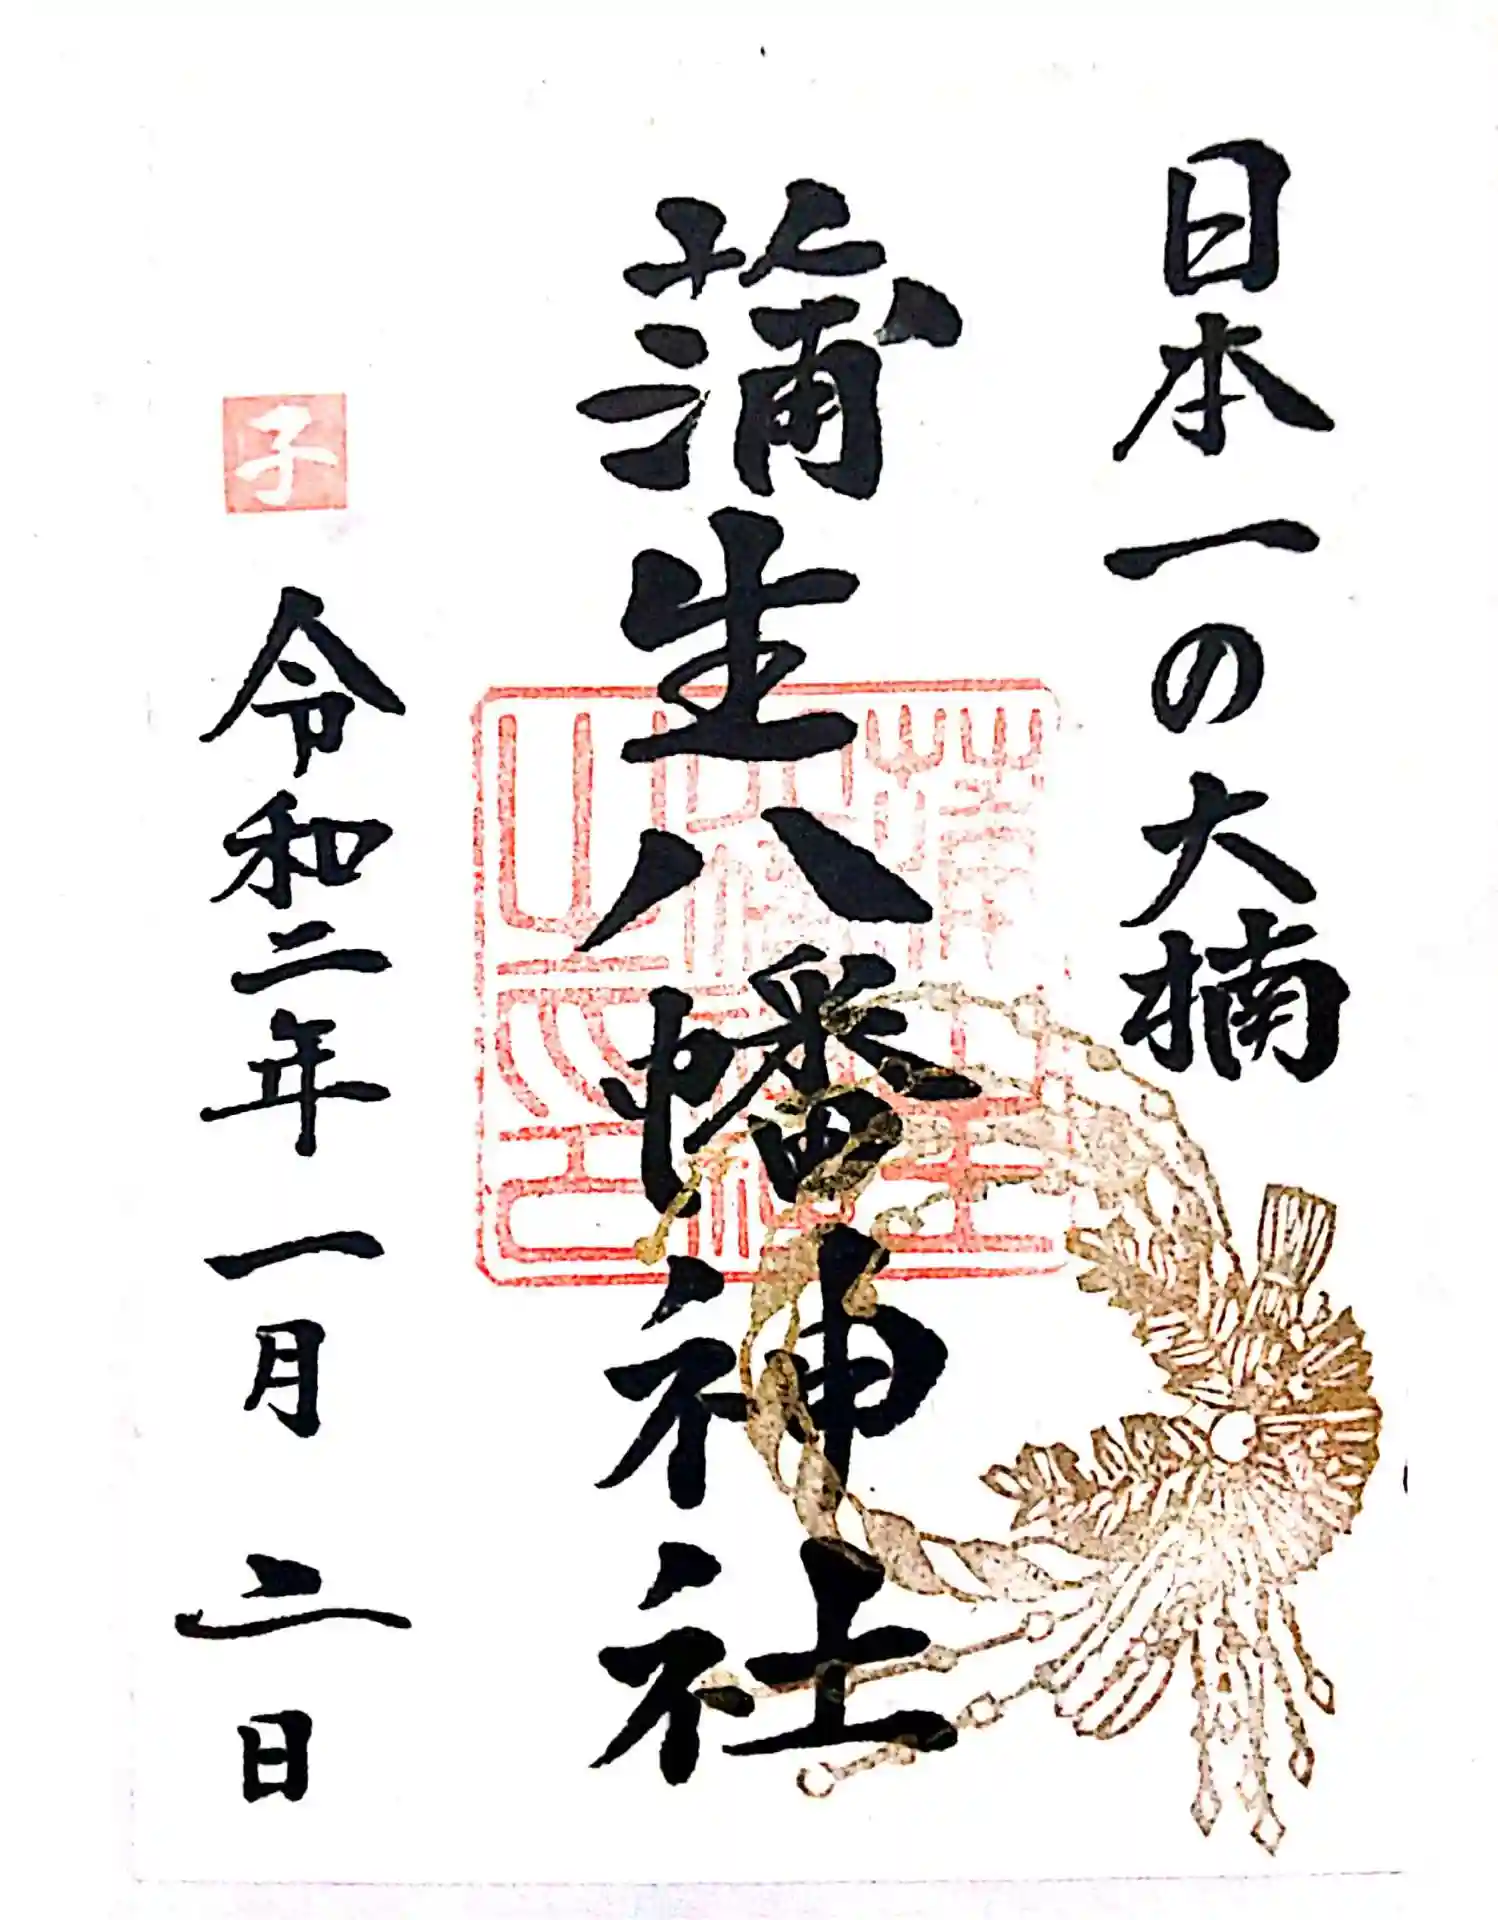 日本一の大楠
蒲生八幡神社
子
令和二年一月二日